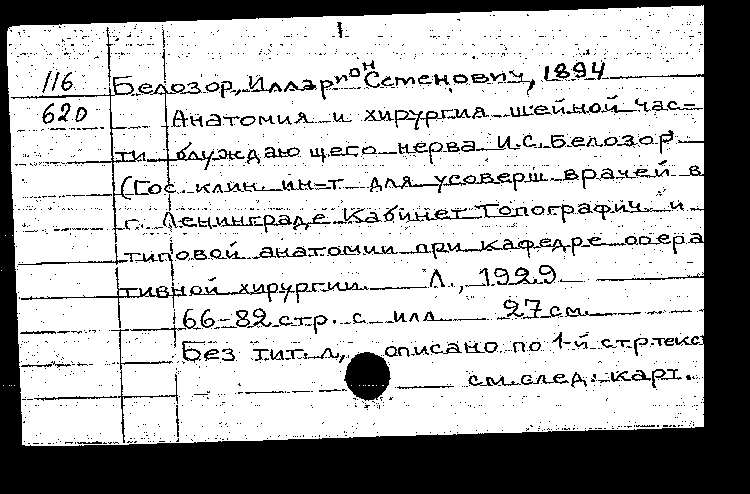 1
116 Белозор, Илларион Семенович, 1894
620 Анатомия и хирургия шейной час=
ти блуждающего нерва И.С. Белозор
(Гос. клин. ин-т для усоверш врачей в
г. Ленинграде Кабинет Топографич. и
типовой анатомии при кафедре опера
тивной хирургии. Л., 1929
66-82 стр. с илл 27 см.
Без тит. л., описано по 1-й стр. текс
см. след. карт.